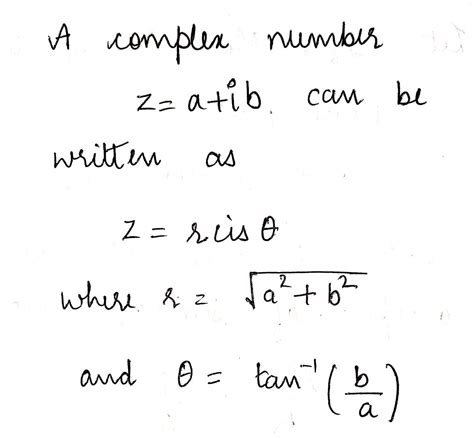 A complex number
z = a+ib. can be
written as
z = r cis θ
where r = √(a² + b²)
and θ = tan⁻¹ (b/a)